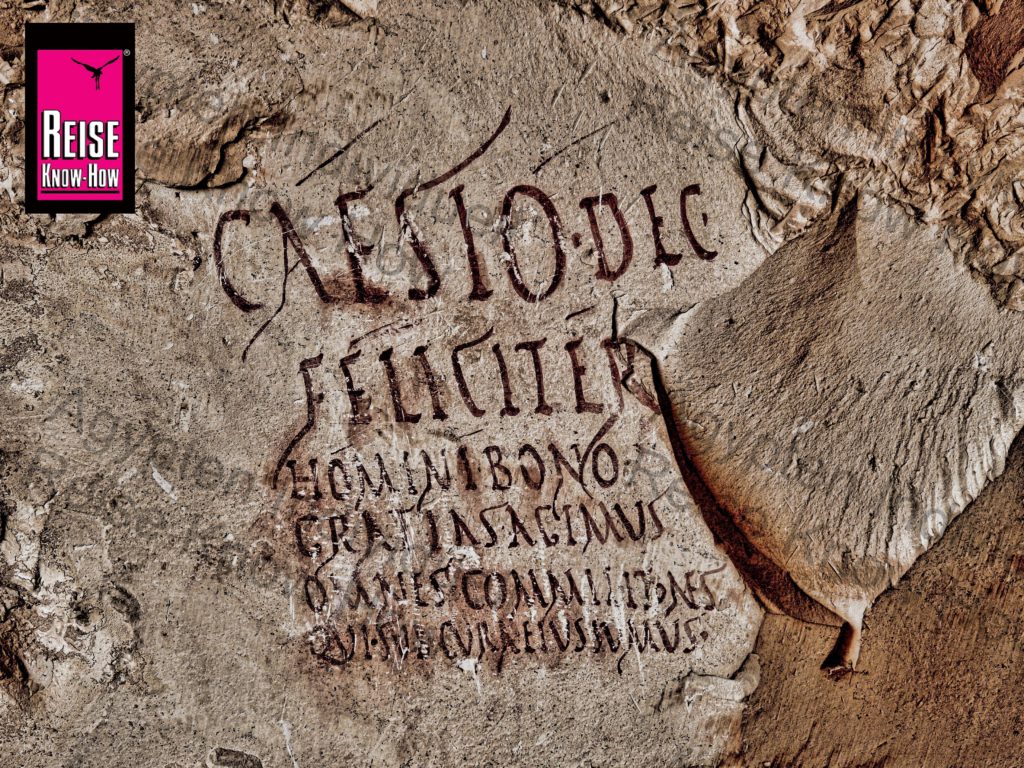 REISE
KNOW-HOW
®
CAESIO·DEC·
FELICITER
HOMINI BONO·
GRATIAS AGIMUS
OMNES COMMILITONES
QUI·SUB CURA EIUS SUMUS·